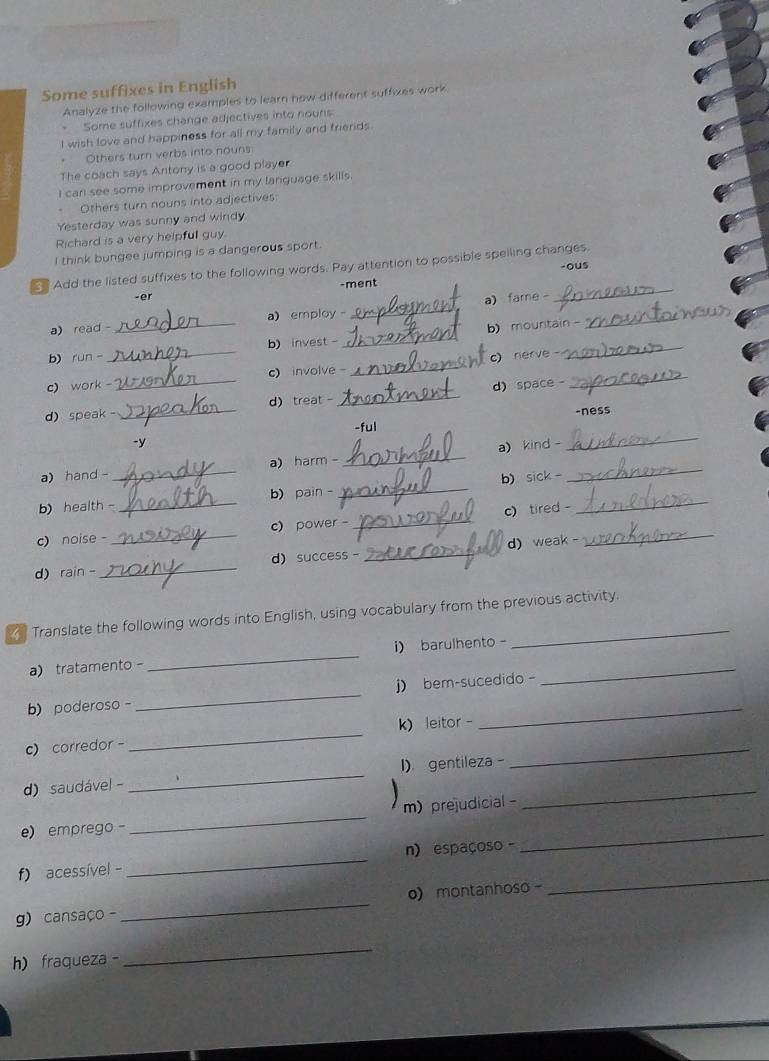 Some suffixes in English
Analyze the following examples to learn how different suffixes work.
• Some suffixes change adjectives into nouns:
I wish love and happiness for all my family and friends.
• Others turn verbs into nouns:
The coach says Antony is a good player.
I can see some improvement in my language skills.
• Others turn nouns into adjectives:
Yesterday was sunny and windy.
Richard is a very helpful guy.
I think bungee jumping is a dangerous sport.
3 Add the listed suffixes to the following words. Pay attention to possible spelling changes.
-er
a) read - reader
b) run - runner
c) work -
d) speak - speaker
-ment
a) employ - employment
b) invest - Investment
c) involve - involvement
d) treat - treatment
-ous
a) fame -
b) mountain - mountainous
c) nerve -
d) space -
-y
a) hand - handy
b) health - health
c) noise - noisey
d) rain - rainy
-ful
a) harm - harmful
b) pain - painful
c) power - powerful
d) success - successful
-ness
a) kind - kindness
b) sick - sickness
c) tired - tiredness
d) weak - weakness
4 Translate the following words into English, using vocabulary from the previous activity.
a) tratamento -
b) poderoso -
c) corredor -
d) saudável -
e) emprego -
f) acessível -
g) cansaço -
h) fraqueza -
i) barulhento -
j) bem-sucedido -
k) leitor -
l) gentileza -
m) prejudicial -
n) espaçoso -
o) montanhoso -